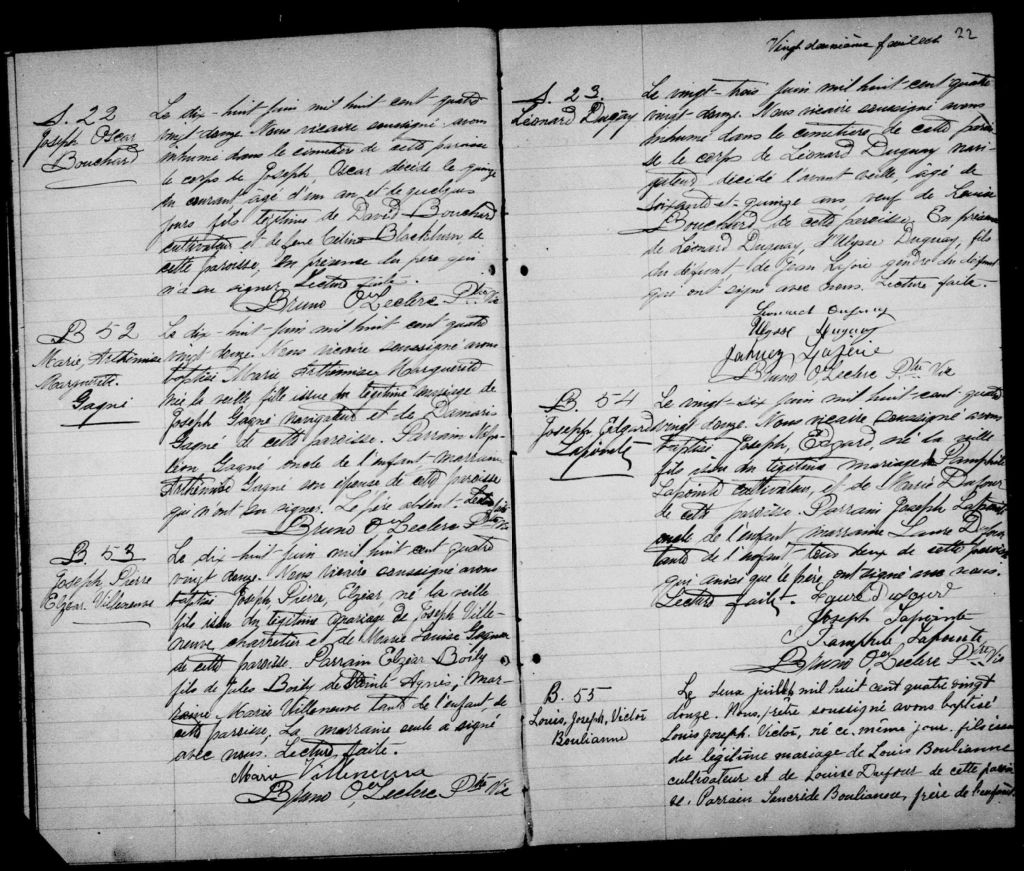 S. 22
Joseph Oscar
Bouchard
Le dix-huit juin mil huit cent quatre
vingt douze. Nous vicaire soussigné avons
inhumé dans le cimetière de cette paroisse
le corps de Joseph Oscar décédé le quinze
du courant, âgé d'un an et de quelques
jours fils légitime de David Bouchard
cultivateur et de feue Blackburn de
cette paroisse, En présence du père qui
n'a su signer. Lecture faite.
Bruno O. Leclerc Ptre Vic
B 52
Marie, Arthémise
Marguerite
Gagné
Le dix-huit juin mil huit cent quatre
vingt douze. Nous vicaire soussigné avons
baptisé Marie Arthémise Marguerite
née la veille fille issue du légitime mariage de
Joseph Gagné navigateur et de Damaris
Gagné de cette paroisse. Parrain Napo-
léon Gagné oncle de l'enfant marraine
Arthémise Gagné son épouse de cette paroisse
qui n'ont su signer. Le père absent. Lecture faite
Bruno O. Leclerc Ptre Vic
B 53
Joseph, Pierre
Elzéar Villeneuve
Le dix huit juin mil huit cent quatre
vingt douze. Nous vicaire soussigné avons
baptisé Joseph Pierre, Elzéar, né la veille
fils issu du légitime mariage de Joseph Ville-
neuve, charretier et de Marie Louise Gagné
de cette paroisse. Parrain Elzéar Boily
fils de Jules Boily de Sainte Agnès; Mar-
raine Marie Villeneuve tante de l'enfant, de
cette paroisse, La marraine seule a signé
avec nous. Lecture faite.
Marie Villeneuve
Bruno O. Leclerc Ptre Vic
Vingt deuxième feuillet 22
S. 23.
Léonard Duguay
Le vingt-trois juin mil huit-cent quatre
vingt-douze. Nous vicaire soussigné avons
inhumé dans le cimetière de cette parois-
se le corps de Léonard Duguay navi-
gateur décédé l'avant veille, âgé de
soixante-et-quinze ans, veuf de Louise
Bouchard, de cette paroisse. En présence
de Léonard Duguay, d'Ulysse Duguay, fils
du défunt, de Jean gendre du défunt
qui ont signé avec nous. Lecture faite.
Léonard Duguay
Ulysse Duguay
Bruno O. Leclerc Ptre Vic
B. 54
Joseph Edgard
Lapointe
Le vingt-six juin mil huit-cent-quatre
vingt douze. Nous vicaire soussigné avons
baptisé Joseph, Edgard, né la veille
fils issu du légitime mariage de Pamphile
Lapointe cultivateur, et de Marie Dufour
de cette paroisse. Parrain Joseph Lapointe
oncle de l'enfant marraine Laure Dufour
tante de l'enfant tous deux de cette paroisse
qui ainsi que le père, ont signé avec nous.
Lecture faite. Laure Dufour
Joseph Lapointe
Pamphile Lapointe
Bruno O. Leclerc Ptre Vic
B. 55
Louis, Joseph, Victor
Boulianne
Le deux juillet mil huit cent quatre vingt
douze. Nous, prêtre soussigné avons baptisé
Louis Joseph. Victor, né ce même jour, fils issu
du légitime mariage de Louis Boulianne
cultivateur et de Louise Dufour de cette parois-
se. Parrain Boulianne, frère de l'enfant